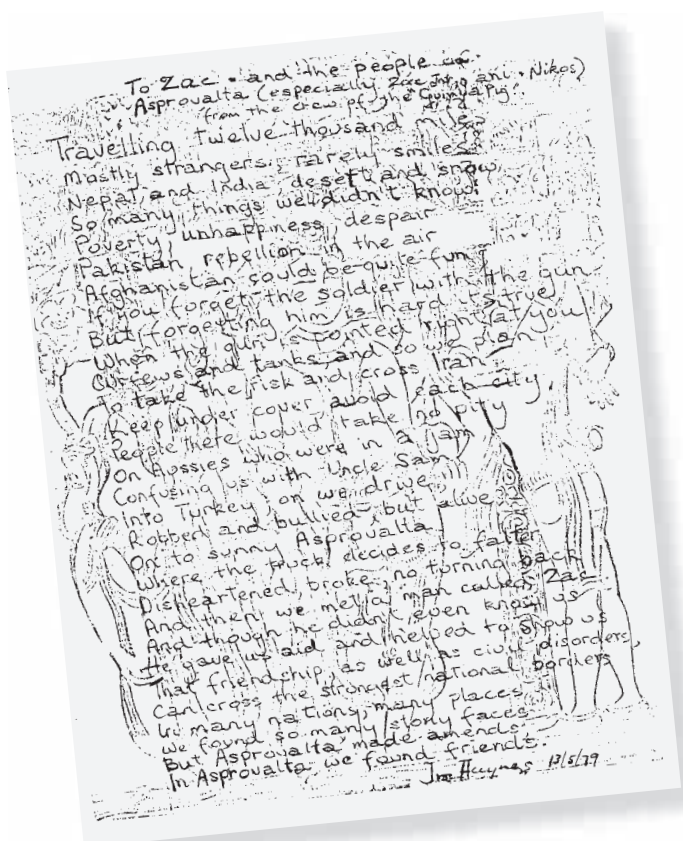 To Zac and the people of
Asprovalta (especially Zac Jnr, ani Nikos)
from the crew of the
Travelling twelve thousand miles
Mostly strangers, rarely smiles
Nepal and India desert and snow
So many things we didn't know.
Poverty, unhappiness, despair
Pakistan rebellion in the air
Afghanistan could be quite fun
If you forget the soldier with the gun
But forgetting him is hard its true
When the gun is pointed right at you
Curfews and tanks and so we plan
To take the risk and cross Iran
Keep under cover avoid each city,
People there would take no pity
On Aussies who were in a jam
Confusing us with Uncle Sam
Into Turkey, on we drive
Robbed and bullied, but alive
On to sunny Asprovalta
Where the truck decides to falter
Disheartened, broke, no turning back
And then we met a man called Zac
And though he didn't even know us
He gave us aid and helped to show us
That friendship, as well as civil disorders,
Can cross the strongest national borders
In many nations, many places
We found so many stony faces
But Asprovalta made amends.
In Asprovalta we found friends.
Haynes 13/5/79